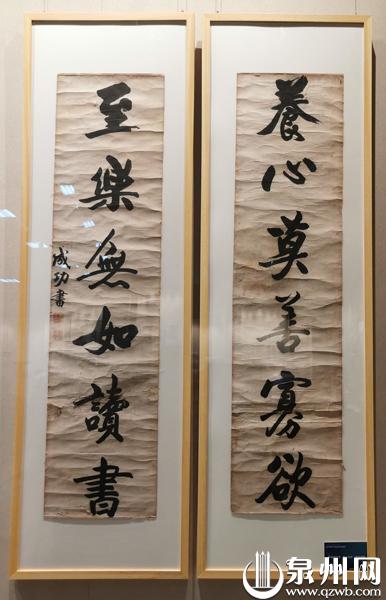 養心莫善寡欲
至樂無如讀書
成功書
泉州网
www.qzwb.com